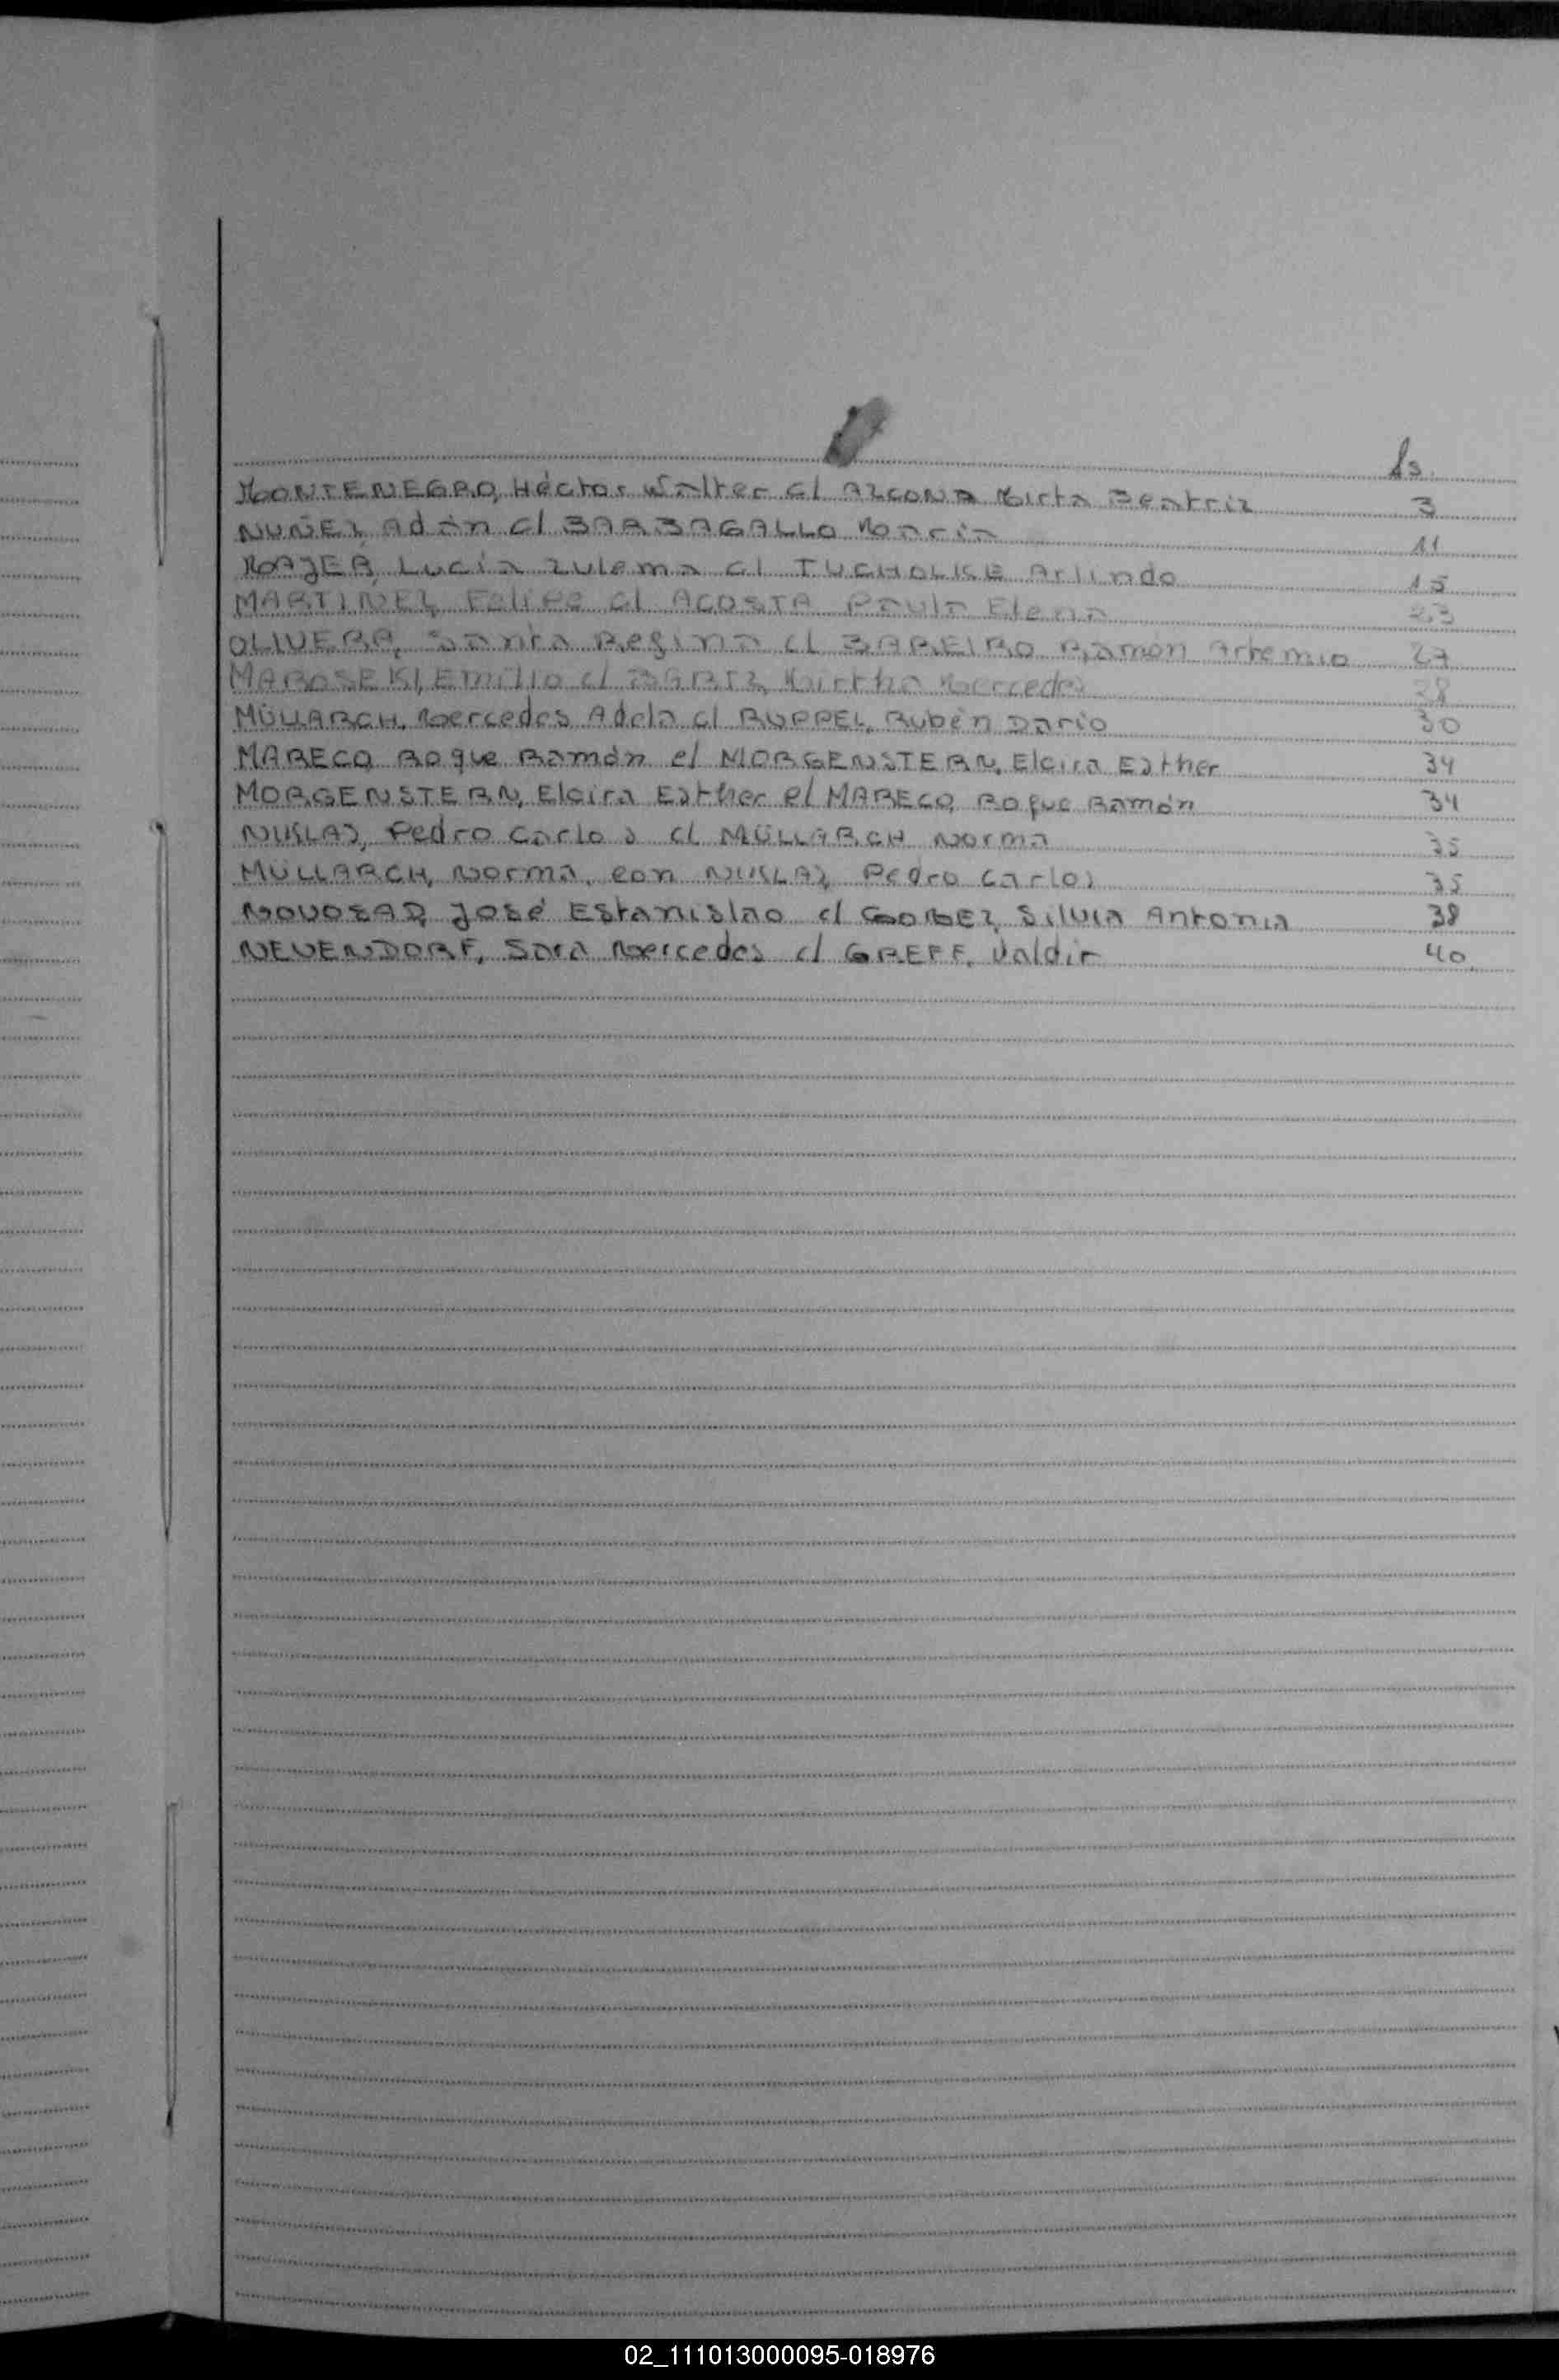 fs.
MONTENEGRO, Héctor Walter c/ AZCONA Mirta Beatriz 3
NUÑEZ Adán c/ BARBAGALLO María 11
Lucía Zulema c/ TUCHOLKE Arlindo 15
MARTINEZ, Felipe c/ ACOSTA Paula Elena 23
OLIVERA, Santa Regina c/ BAREIRO Ramón Artemio 27
Emilio c/ Mirtha Mercedes 28
MÜLLARCH, Mercedes Adela c/ RUPPEL, Rubén Dario 30
MARECO Roque Ramón c/ MORGENSTERN, Elcira Esther 34
MORGENSTERN, Elcira Esther c/ MARECO, Roque Ramón 34
NIKLAS, Pedro Carlos c/ MÜLLARCH Norma 35
MÜLLARCH, Norma, con NIKLAS, Pedro Carlos 35
NOVOSAD, José Estanislao c/ GOMEZ, Silvia Antonia 38
NEUENDORF, Sara Mercedes c/ GREFF, Valdir 40
02_111013000095-018976